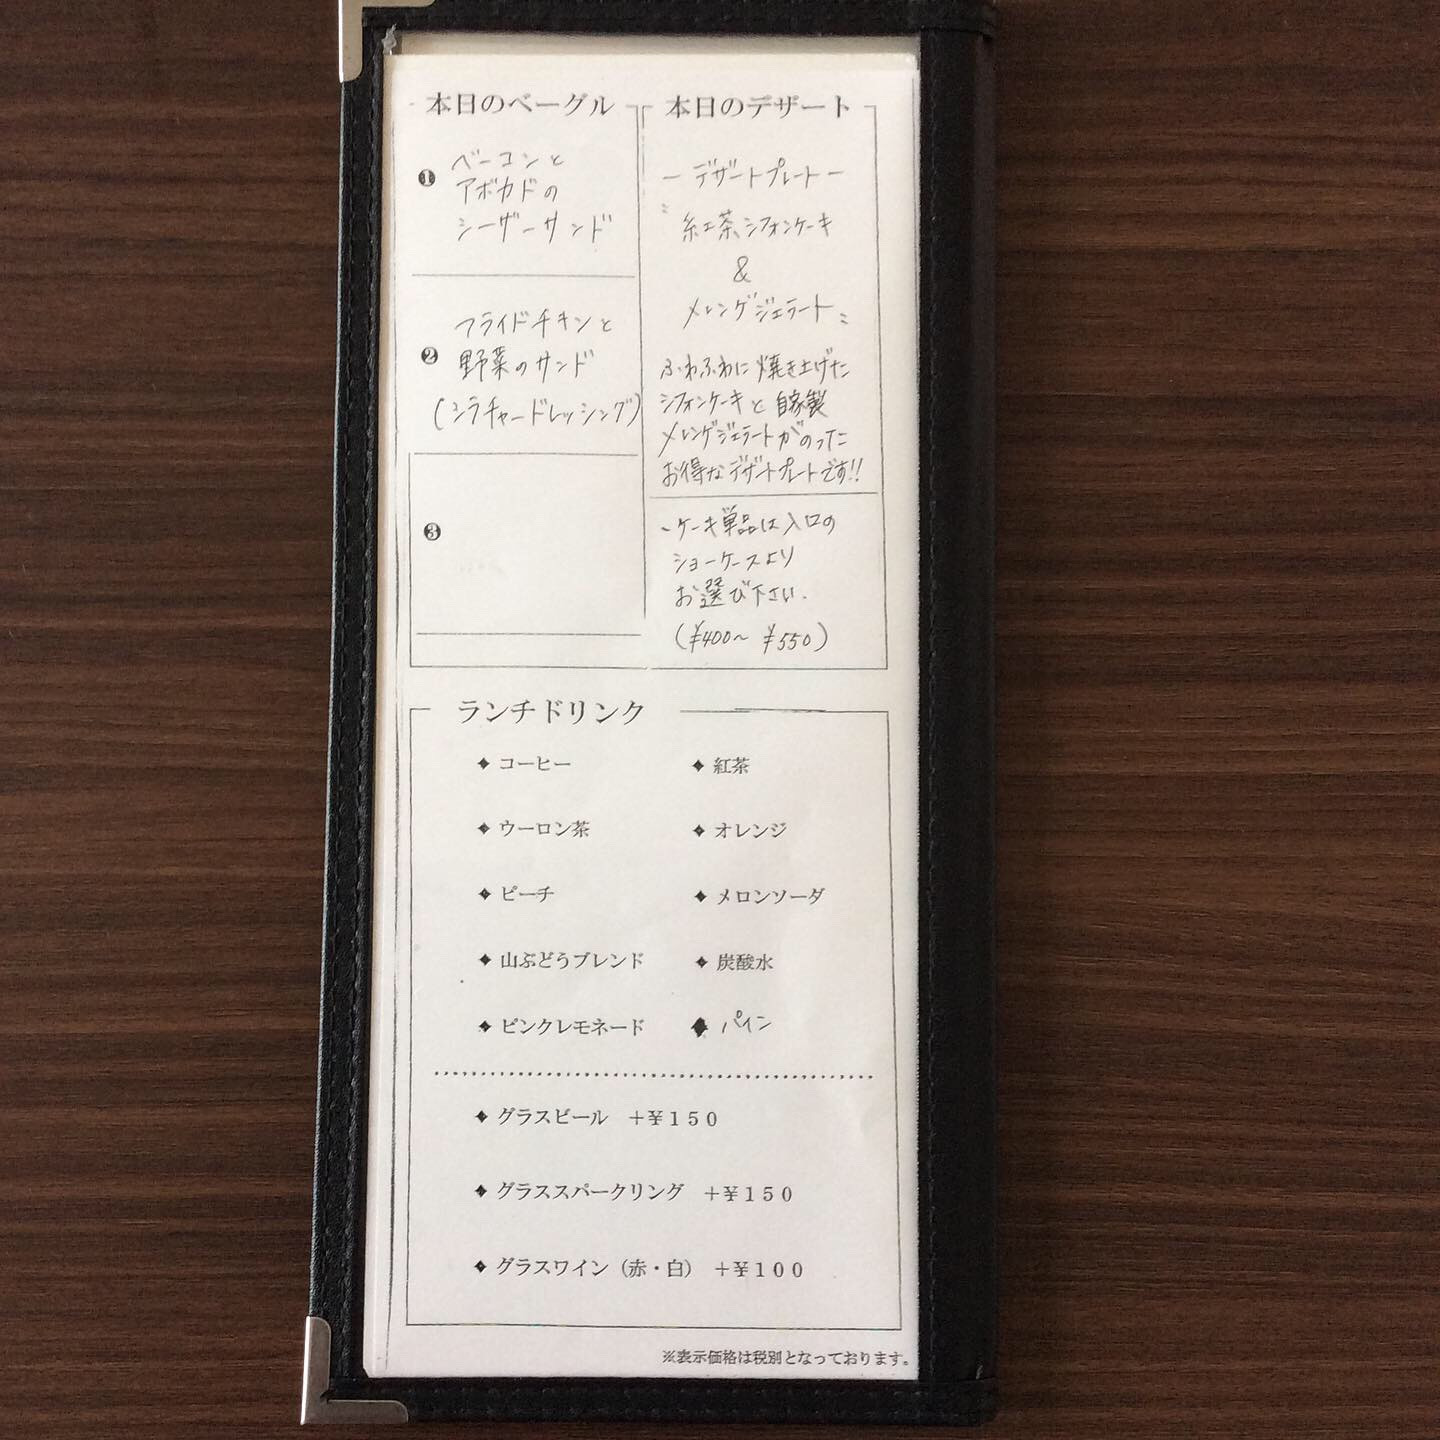 本日のベーグル
❶ ベーコンと
アボカドの
シーザーサンド
❷ フライドチキンと
野菜のサンド
(シラチャードレッシング)
❸
本日のデザート
ー デザートプレート ー
紅茶シフォンケーキ
&
メレンゲジェラート
ふわふわに焼き上げた
シフォンケーキと自家製
メレンゲジェラートがのった
お得なデザートプレートです!!
~ケーキ単品は入口の
ショーケースより
お選び下さい.
(¥400~ ¥550)
ランチドリンク
◆ コーヒー ◆ 紅茶
◆ ウーロン茶 ◆ オレンジ
◆ ピーチ ◆ メロンソーダ
◆ 山ぶどうブレンド ◆ 炭酸水
◆ ピンクレモネード ◆ パイン
◆ グラスビール +¥150
◆ グラススパークリング +¥150
◆ グラスワイン（赤・白） +¥100
※表示価格は税別となっております。